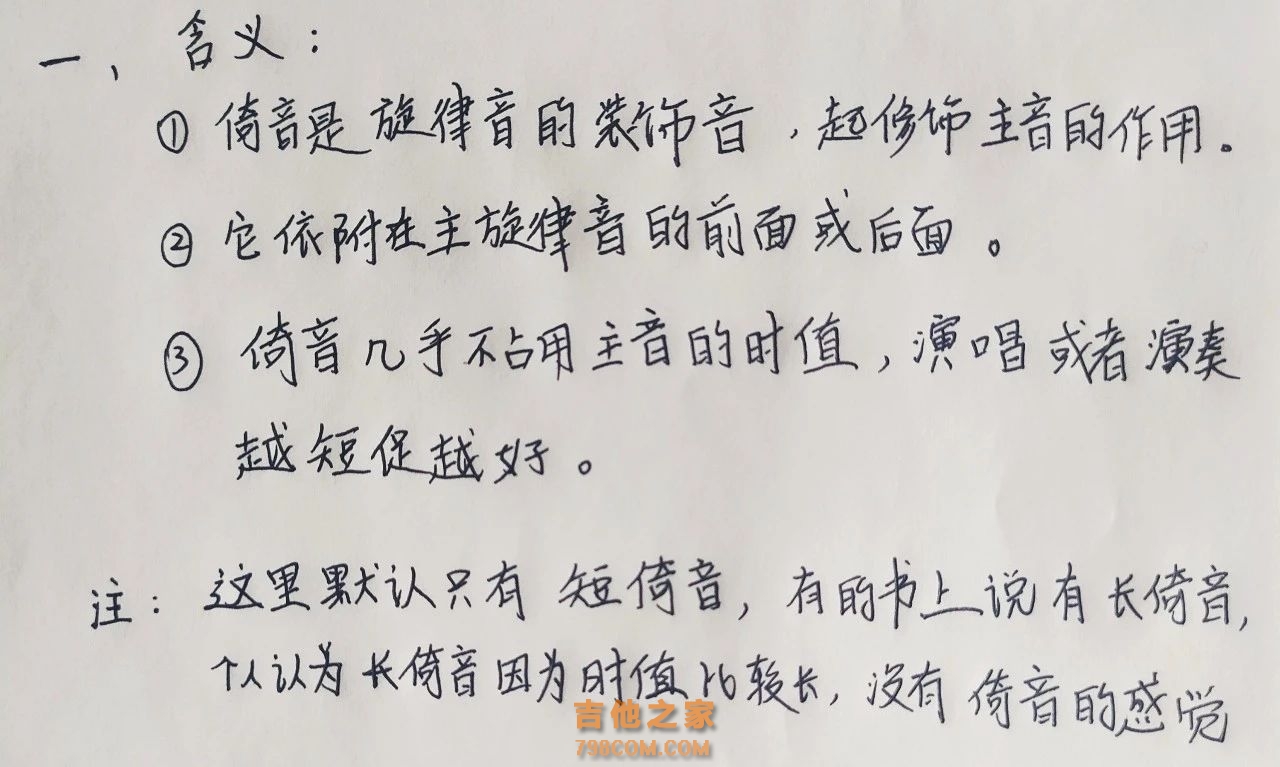 一、含义：
① 倚音是旋律音的装饰音，起修饰主音的作用。
② 它依附在主旋律音的前面或后面。
③ 倚音几乎不占用主音的时值，演唱或者演奏
越短促越好。
注：这里默认只有短倚音，有的书上说有长倚音，
个人认为长倚音因为时值比较长，没有倚音的感觉
吉他之家
798COM.COM